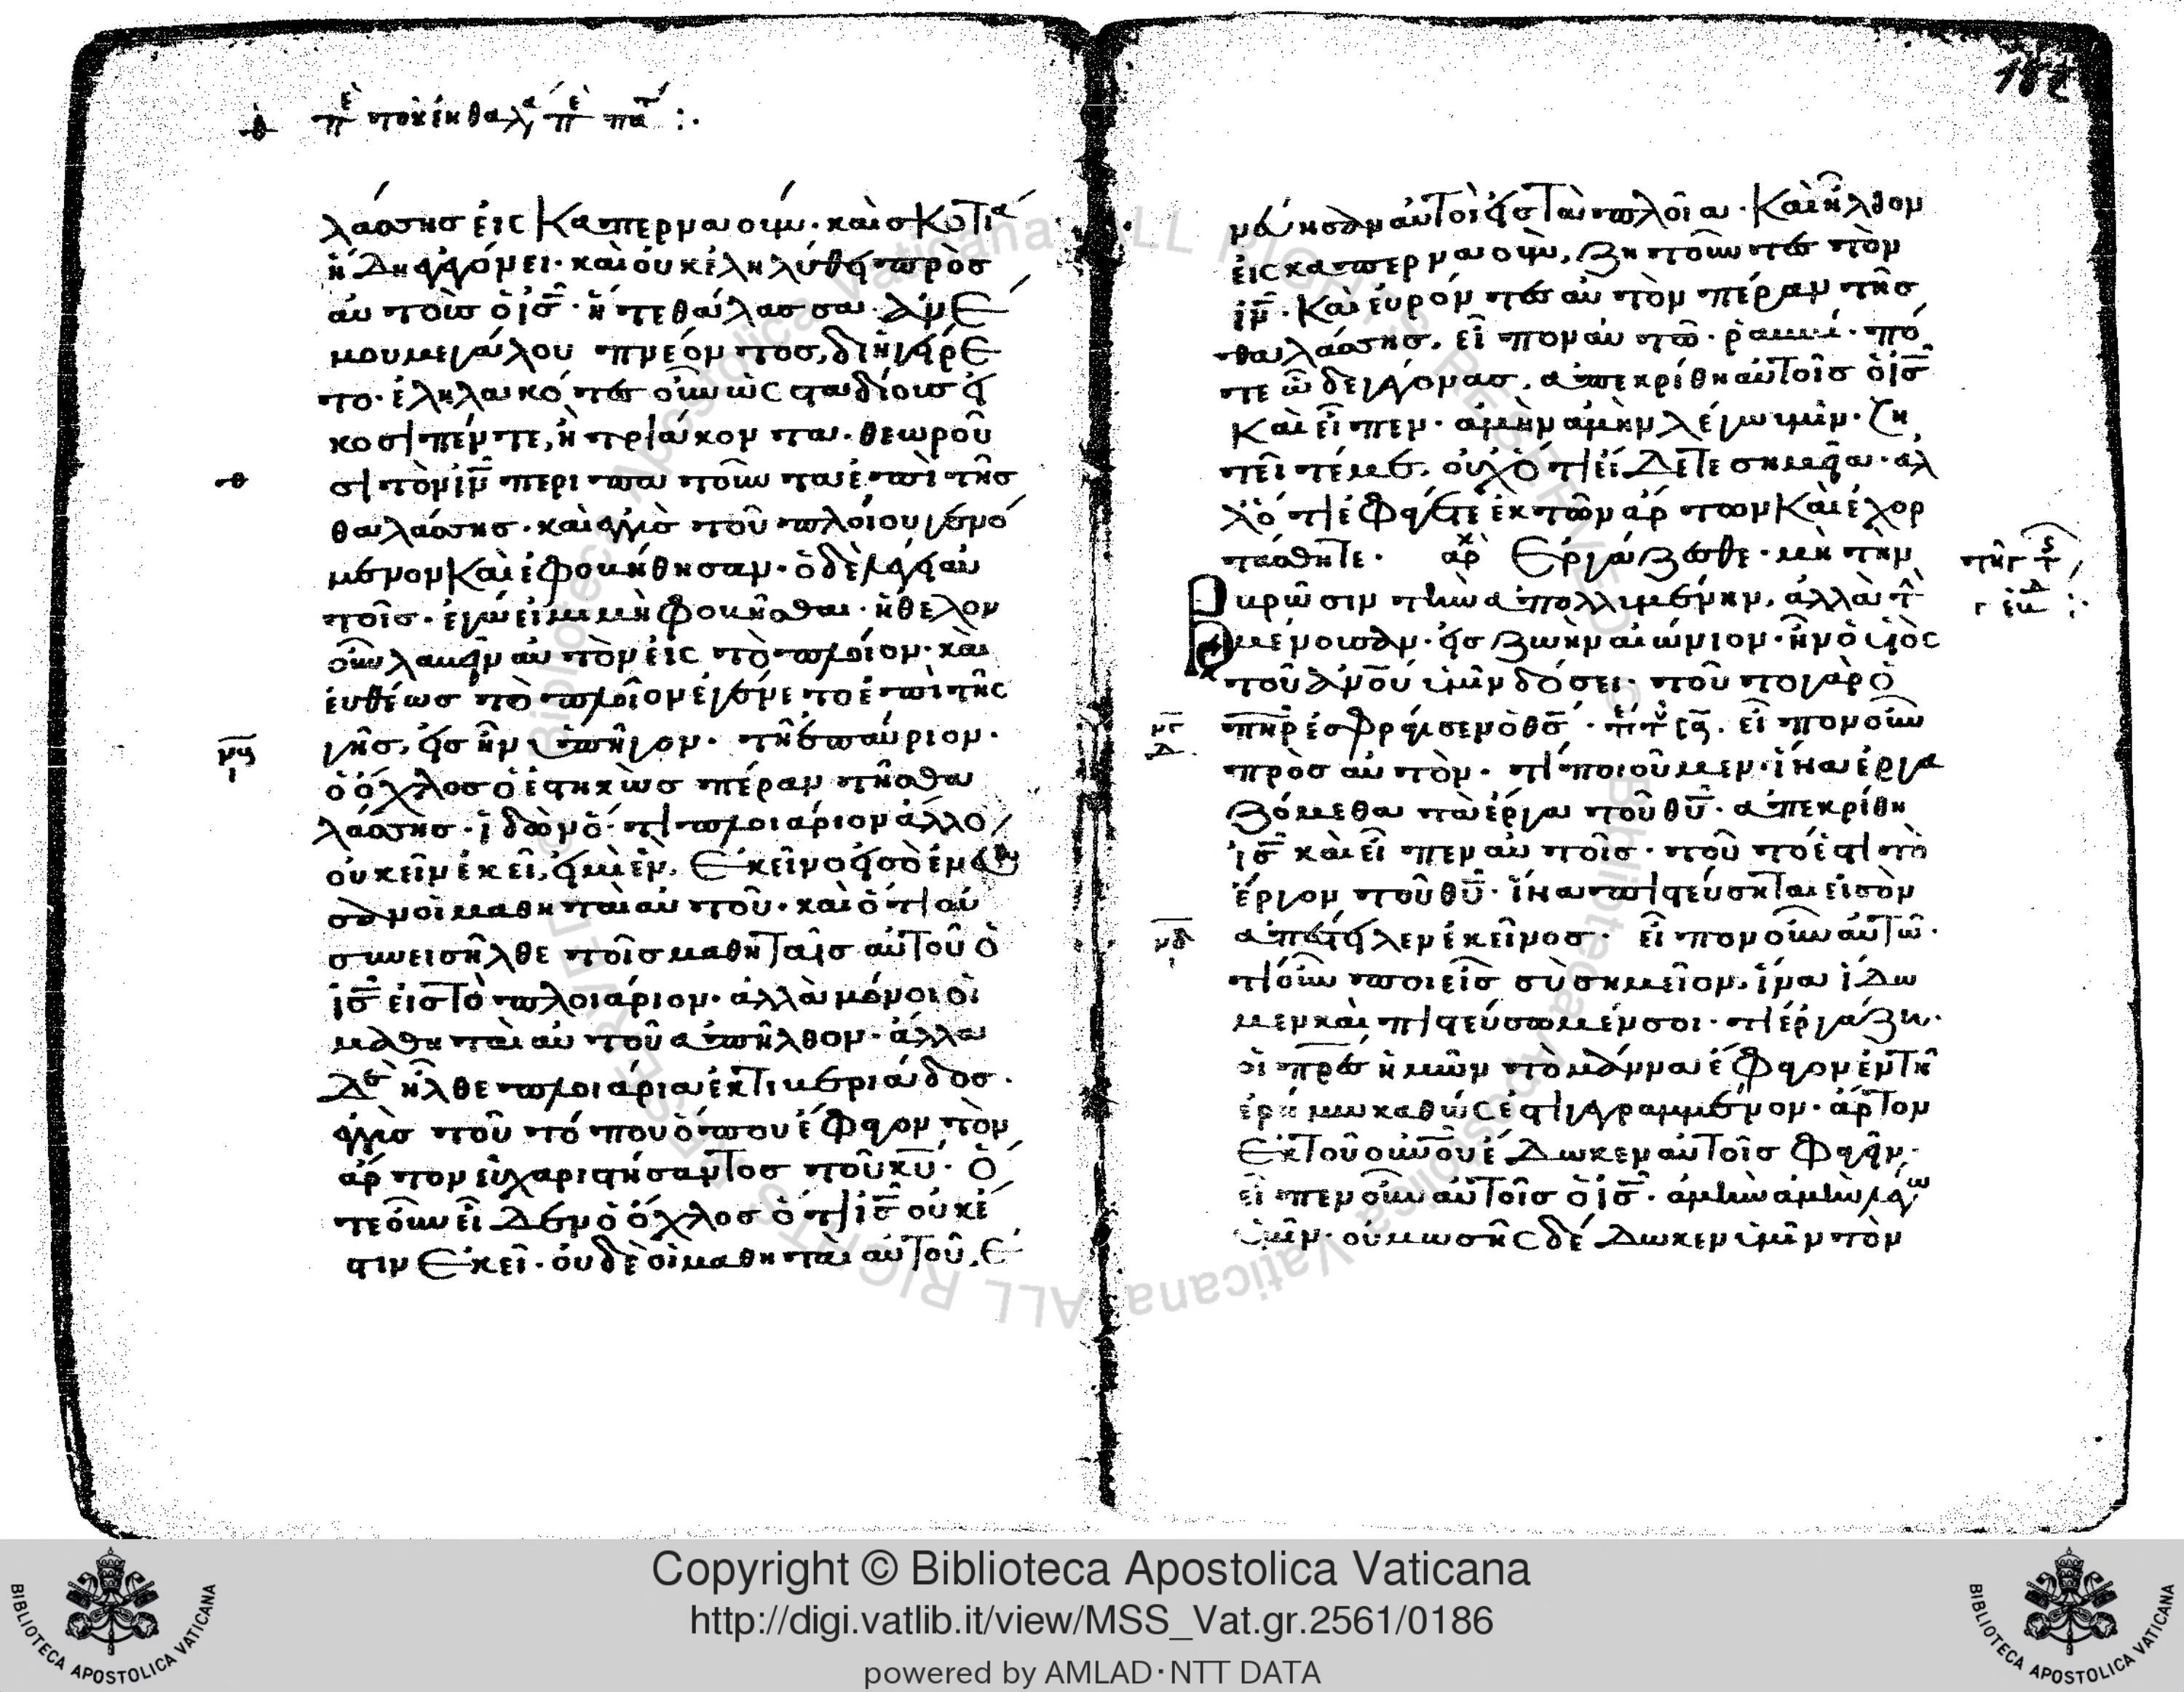 θ πε τοῦ ἐν θαλ πε πατ :·
λάσσης εἰς Καπερναούμ· καὶ σκοτία
ἤδη ἐγεγόνει· καὶ οὐκ ἐληλύθει πρὸς
αὐτοὺς ὁ ισ· ἥ τε θάλασσα ἀνέ
μου μεγάλου πνέοντος, διηγείρε
το· ἐληλακότες οὖν ὡς σταδίους εἰ
κοσιπέντε, ἢ τριάκοντα· θεωροῦ
σι τὸν ιν περιπατοῦντα ἐπὶ τῆς
θαλάσσης· καὶ ἐγγὺς τοῦ πλοίου γενό
μενον καὶ ἐφοβήθησαν· ὁ δὲ λέγει αὐ
τοῖς· ἐγώ εἰμι μὴ φοβεῖσθαι· ἤθελον
οὖν λαβεῖν αὐτὸν εἰς τὸ πλοῖον· καὶ
εὐθέως τὸ πλοῖον ἐγένετο ἐπὶ τῆς
γῆς, εἰς ἣν ὑπῆγον· τῇ ἐπαύριον·
ὁ ὄχλος ὁ ἑστηκὼς πέραν τῆς θα
λάσσης· ἰδὼν ὅτι πλοιάριον ἄλλο
οὐκ ἦν ἐκεῖ, εἰ μὴ ἓν, ἐκεῖνο εἰς ὃ ἐνέβη
σαν οἱ μαθηταὶ αὐτοῦ· καὶ ὅτι οὐ
συνεισῆλθε τοῖς μαθηταῖς αὐτοῦ ὁ
ισ εἰς τὸ πλοιάριον· ἀλλὰ μόνοι οἱ
μαθηταὶ αὐτοῦ ἀπῆλθον· ἄλλα
δὲ ἦλθε πλοιάρια ἐκ τιβεριάδος·
ἐγγὺς τοῦ τόπου ὅπου ἔφαγον τὸν
ἄρτον εὐχαριστήσαντος τοῦ κυ· ὅ
τε οὖν εἶδεν ὁ ὄχλος ὅτι ισ οὐκ ἔ
στιν ἐκεῖ· οὐδὲ οἱ μαθηταὶ αὐτοῦ, ἐ
νέβησαν αὐτοὶ εἰς τὰ πλοῖα· καὶ ἦλθον
εἰς καπερναοὺμ, ζητοῦντες τὸν
ιν· Καὶ εὑρόντες αὐτὸν πέραν τῆς
θαλάσσης, εἶπον αὐτῶ· ῥαββί· πό
τε ὧδε γέγονας, ἀπεκρίθη αὐτοῖς ὁ ισ
Καὶ εἶπεν· ἀμὴν ἀμὴν λέγω ὑμῖν· ζη
τεῖτέ με, οὐχ ὅτι εἴδετε σημεῖα· ἀλ
λ' ὅτι ἐφάγετε ἐκ τῶν ἄρτων καὶ ἐχορ
τάσθητε· ἀρχ Ἐργάζεσθε· μὴ τὴν
βρῶσιν τὴν ἀπολλυμένην, ἀλλὰ τ
μένουσαν· εἰς ζωὴν αἰώνιον· ἣν ὁ υἱὸς
τοῦ ἀνου ὑμῖν δώσει· τοῦτο γὰρ ὁ
πηρ ἐσφράγισεν ὁ θσ· εἶπον οὖν
πρὸς αὐτὸν· τί ποιοῦμεν· ἵνα ἐργα
ζόμεθα τὰ ἔργα τοῦ θυ· ἀπεκρίθη
ισ καὶ εἶπεν αὐτοῖς· τοῦτό ἐστι τὸ
ἔργον τοῦ θυ· ἵνα πιστεύσηται εἰς ὃν
ἀπέστειλεν ἐκεῖνος· εἶπον οὖν αὐτῶ·
τί οὖν ποιεῖς σὺ σημεῖον, ἵνα ἴδω
μεν καὶ πιστεύσωμέν σοι· τί ἐργάζη·
οἱ πρες ἡμῶν τὸ μάννα ἔφαγον ἐν τῆ
ἐρήμω καθώς ἐστι γεγραμμένον· ἄρτον
ἐκ τοῦ οὐνου ἔδωκεν αὐτοῖς φαγεῖν·
εἶπεν οὖν αὐτοῖς ὁ ισ· ἀμὴν ἀμὴν λέγω
ὑμῖν· οὐ μωσῆς δέδωκεν ὑμῖν τὸν
Copyright © Biblioteca Apostolica Vaticana
http://digi.vatlib.it/view/MSS_Vat.gr.2561/0186
powered by AMLAD·NTT DATA
BIBLIOTECA APOSTOLICA VATICANA
BIBLIOTECA APOSTOLICA VATICANA